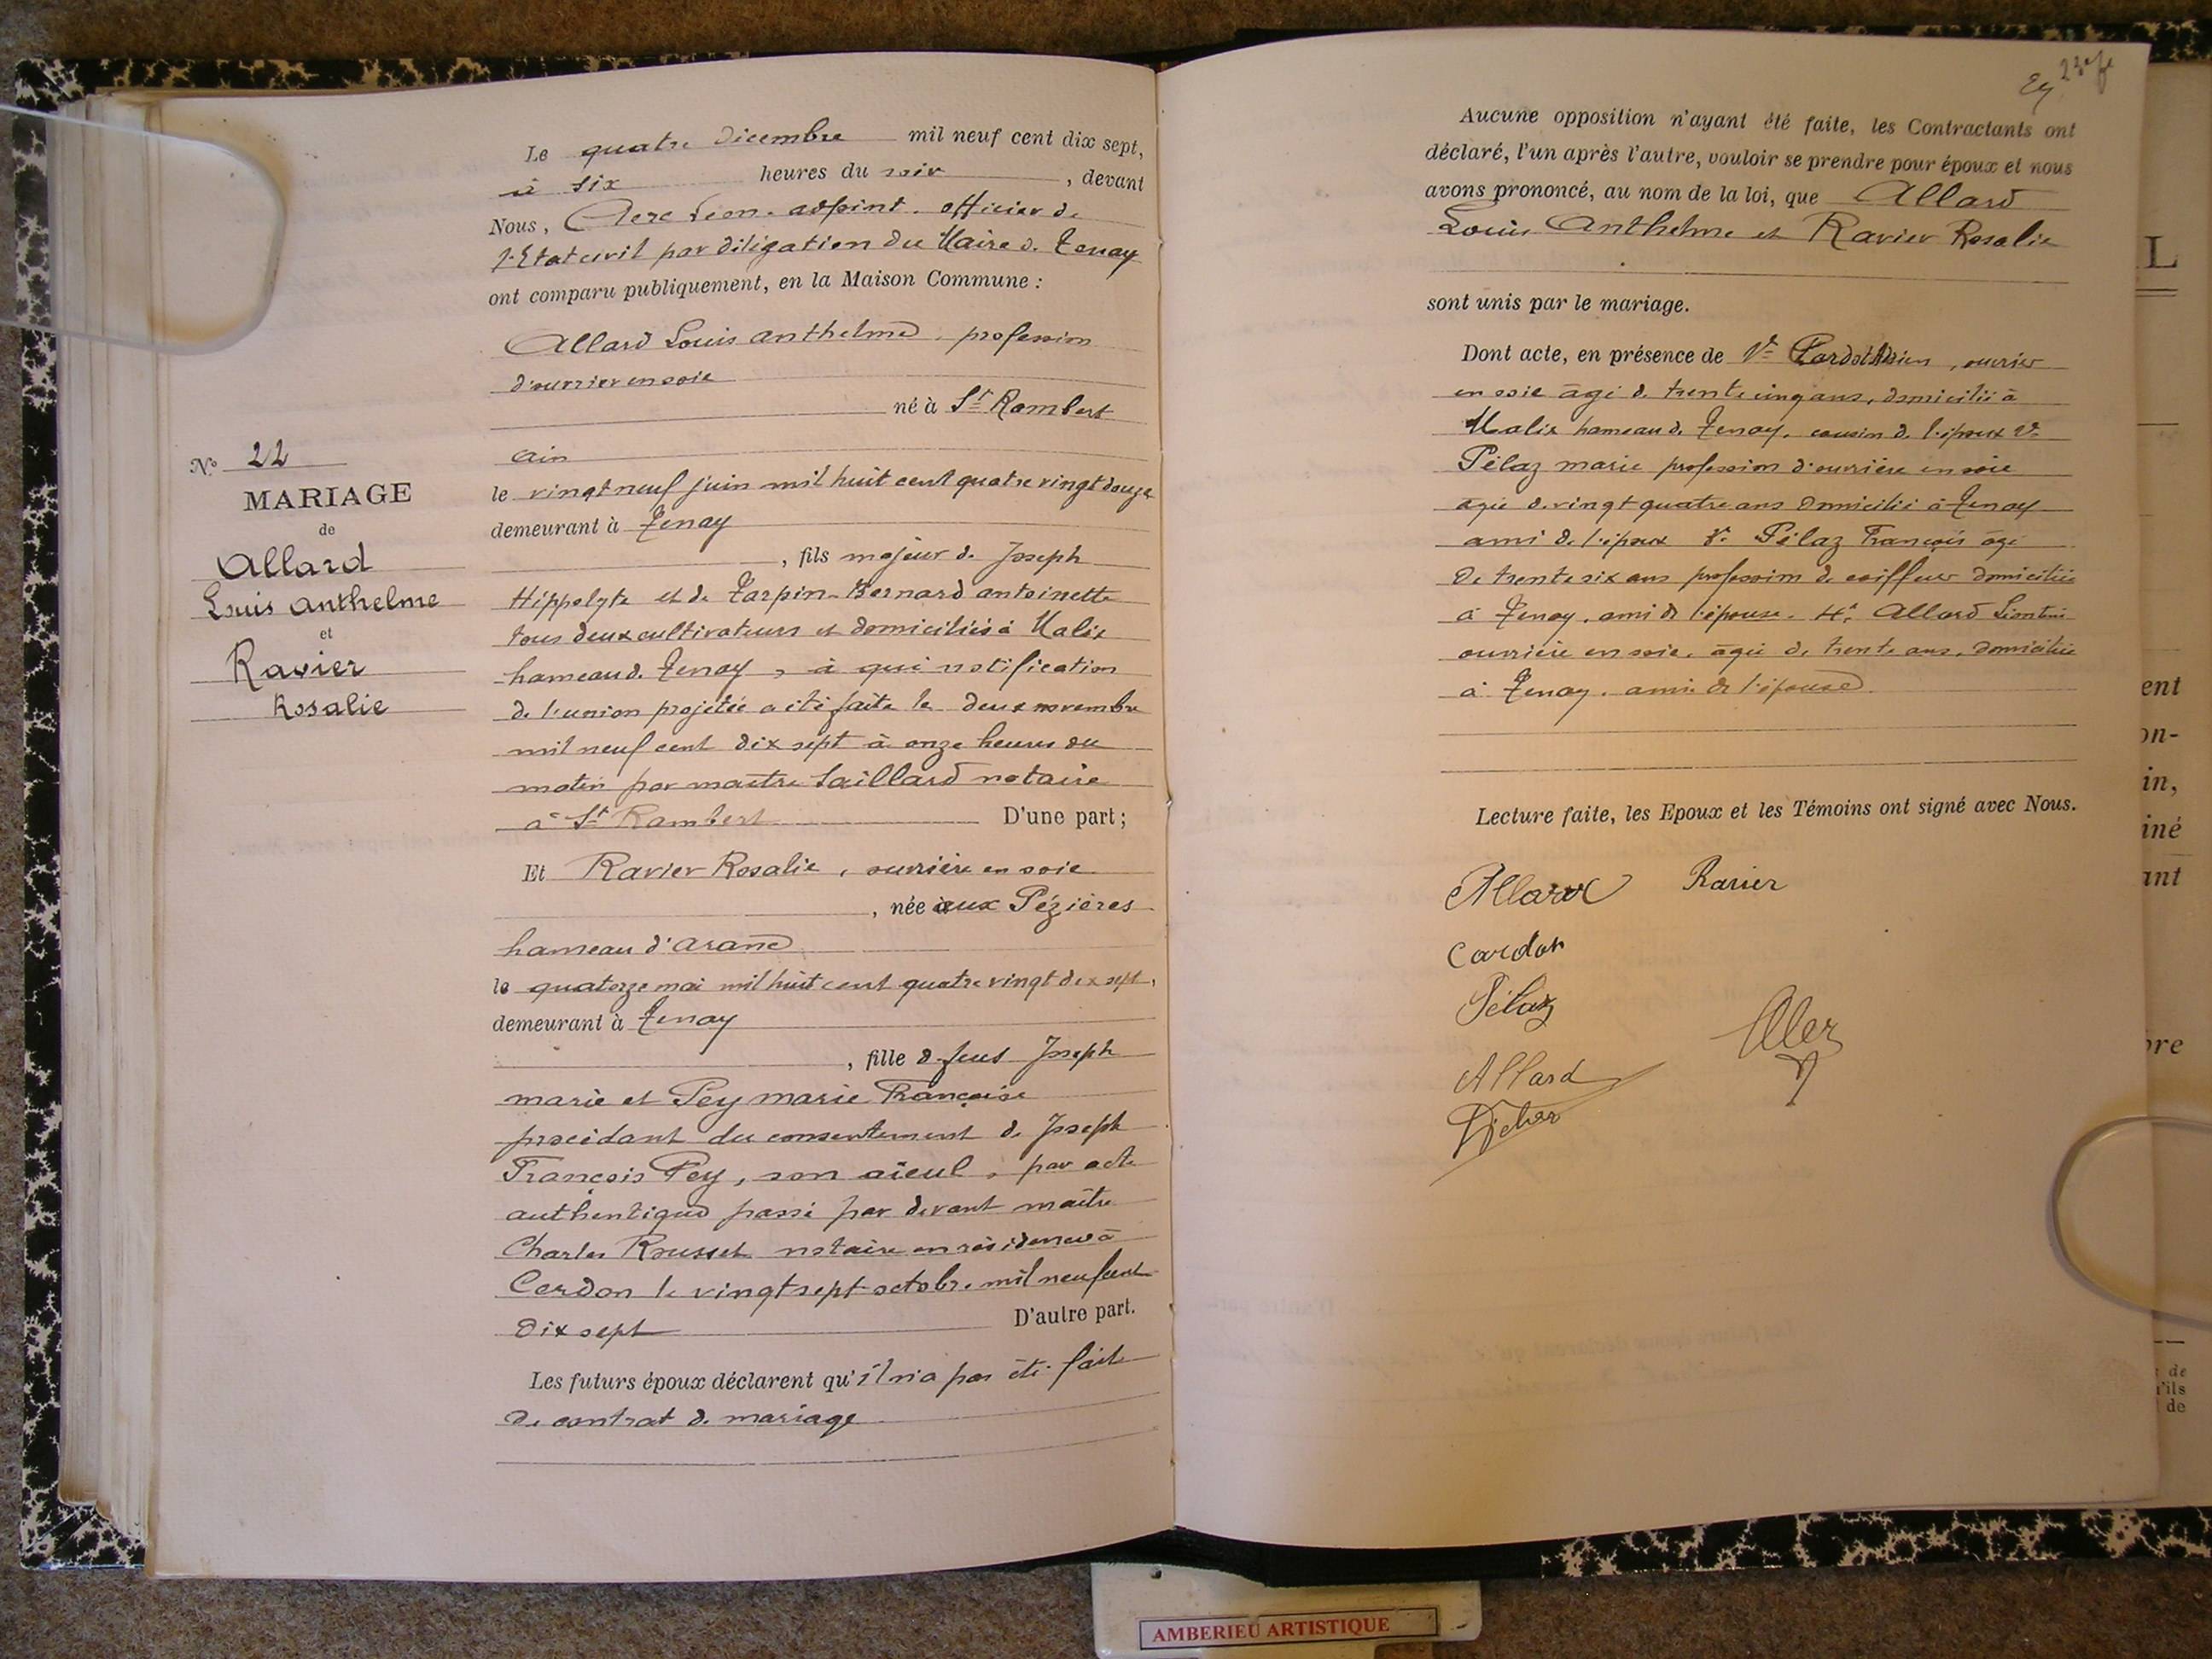 Le quatre Décembre mil neuf cent dix sept,
à six heures du soir, devant
Nous, Léon. adjoint. officier de
l'Etat civil par délégation du Maire de Tenay
ont comparu publiquement, en la Maison Commune :
Allard Louis Anthelme, profession
d'ouvrier en soie
né à St Rambert
Ain
le vingt neuf juin mil huit cent quatre vingt douze
demeurant à Tenay
, fils majeur de Joseph
Hippolyte et de Tarpin-Bernard antoinette
tous deux cultivateurs et domiciliés à Malix
hameau de Tenay, à qui notification
de l'union projetée a été faite le deux novembre
mil neuf cent dix sept à onze heures du
matin par maître Saillard notaire
à St Rambert D'une part;
Et Ravier Rosalie, ouvrière en soie
, née aux Pézières
hameau d'Arand
le quatorze mai mil huit cent quatre vingt dix sept,
demeurant à Tenay
, fille de feus Joseph
marie et Pey marie Françoise
procédant du consentement de Joseph
François Pey, son aïeul, par acte
authentique passé par devant maître
Charles Rousset notaire en résidence à
Cerdon le vingt sept octobre mil neuf cent
dix sept D'autre part.
Les futurs époux déclarent qu'il n'a pas été fait
de contrat de mariage
No 22
MARIAGE
de
Allard
Louis Anthelme
et
Ravier
Rosalie
Aucune opposition n'ayant été faite, les Contractants ont
déclaré, l'un après l'autre, vouloir se prendre pour époux et nous
avons prononcé, au nom de la loi, que Allard
Louis Anthelme et Ravier Rosalie
sont unis par le mariage.
Dont acte, en présence de 1er , ouvrier
en soie âgé de trente cinq ans, domicilié à
Malix hameau de Tenay, cousin de l'époux 2e
Pélaz marie profession d'ouvrière en soie
âgée de vingt quatre ans domiciliée à Tenay
amie de l'époux 3e Pélaz François âgé
de trente six ans profession de coiffeur domicilié
à Tenay, ami de l'épouse. 4e Allard Léontine
ouvrière en soie, âgée de trente ans, domiciliée
à Tenay, amie de l'épouse
Lecture faite, les Epoux et les Témoins ont signé avec Nous.
Allard Ravier
Cardon
Pélaz
Allard
L
ent
on-
in,
iné
ant
bre
de
'ils
de
AMBERIEU ARTISTIQUE